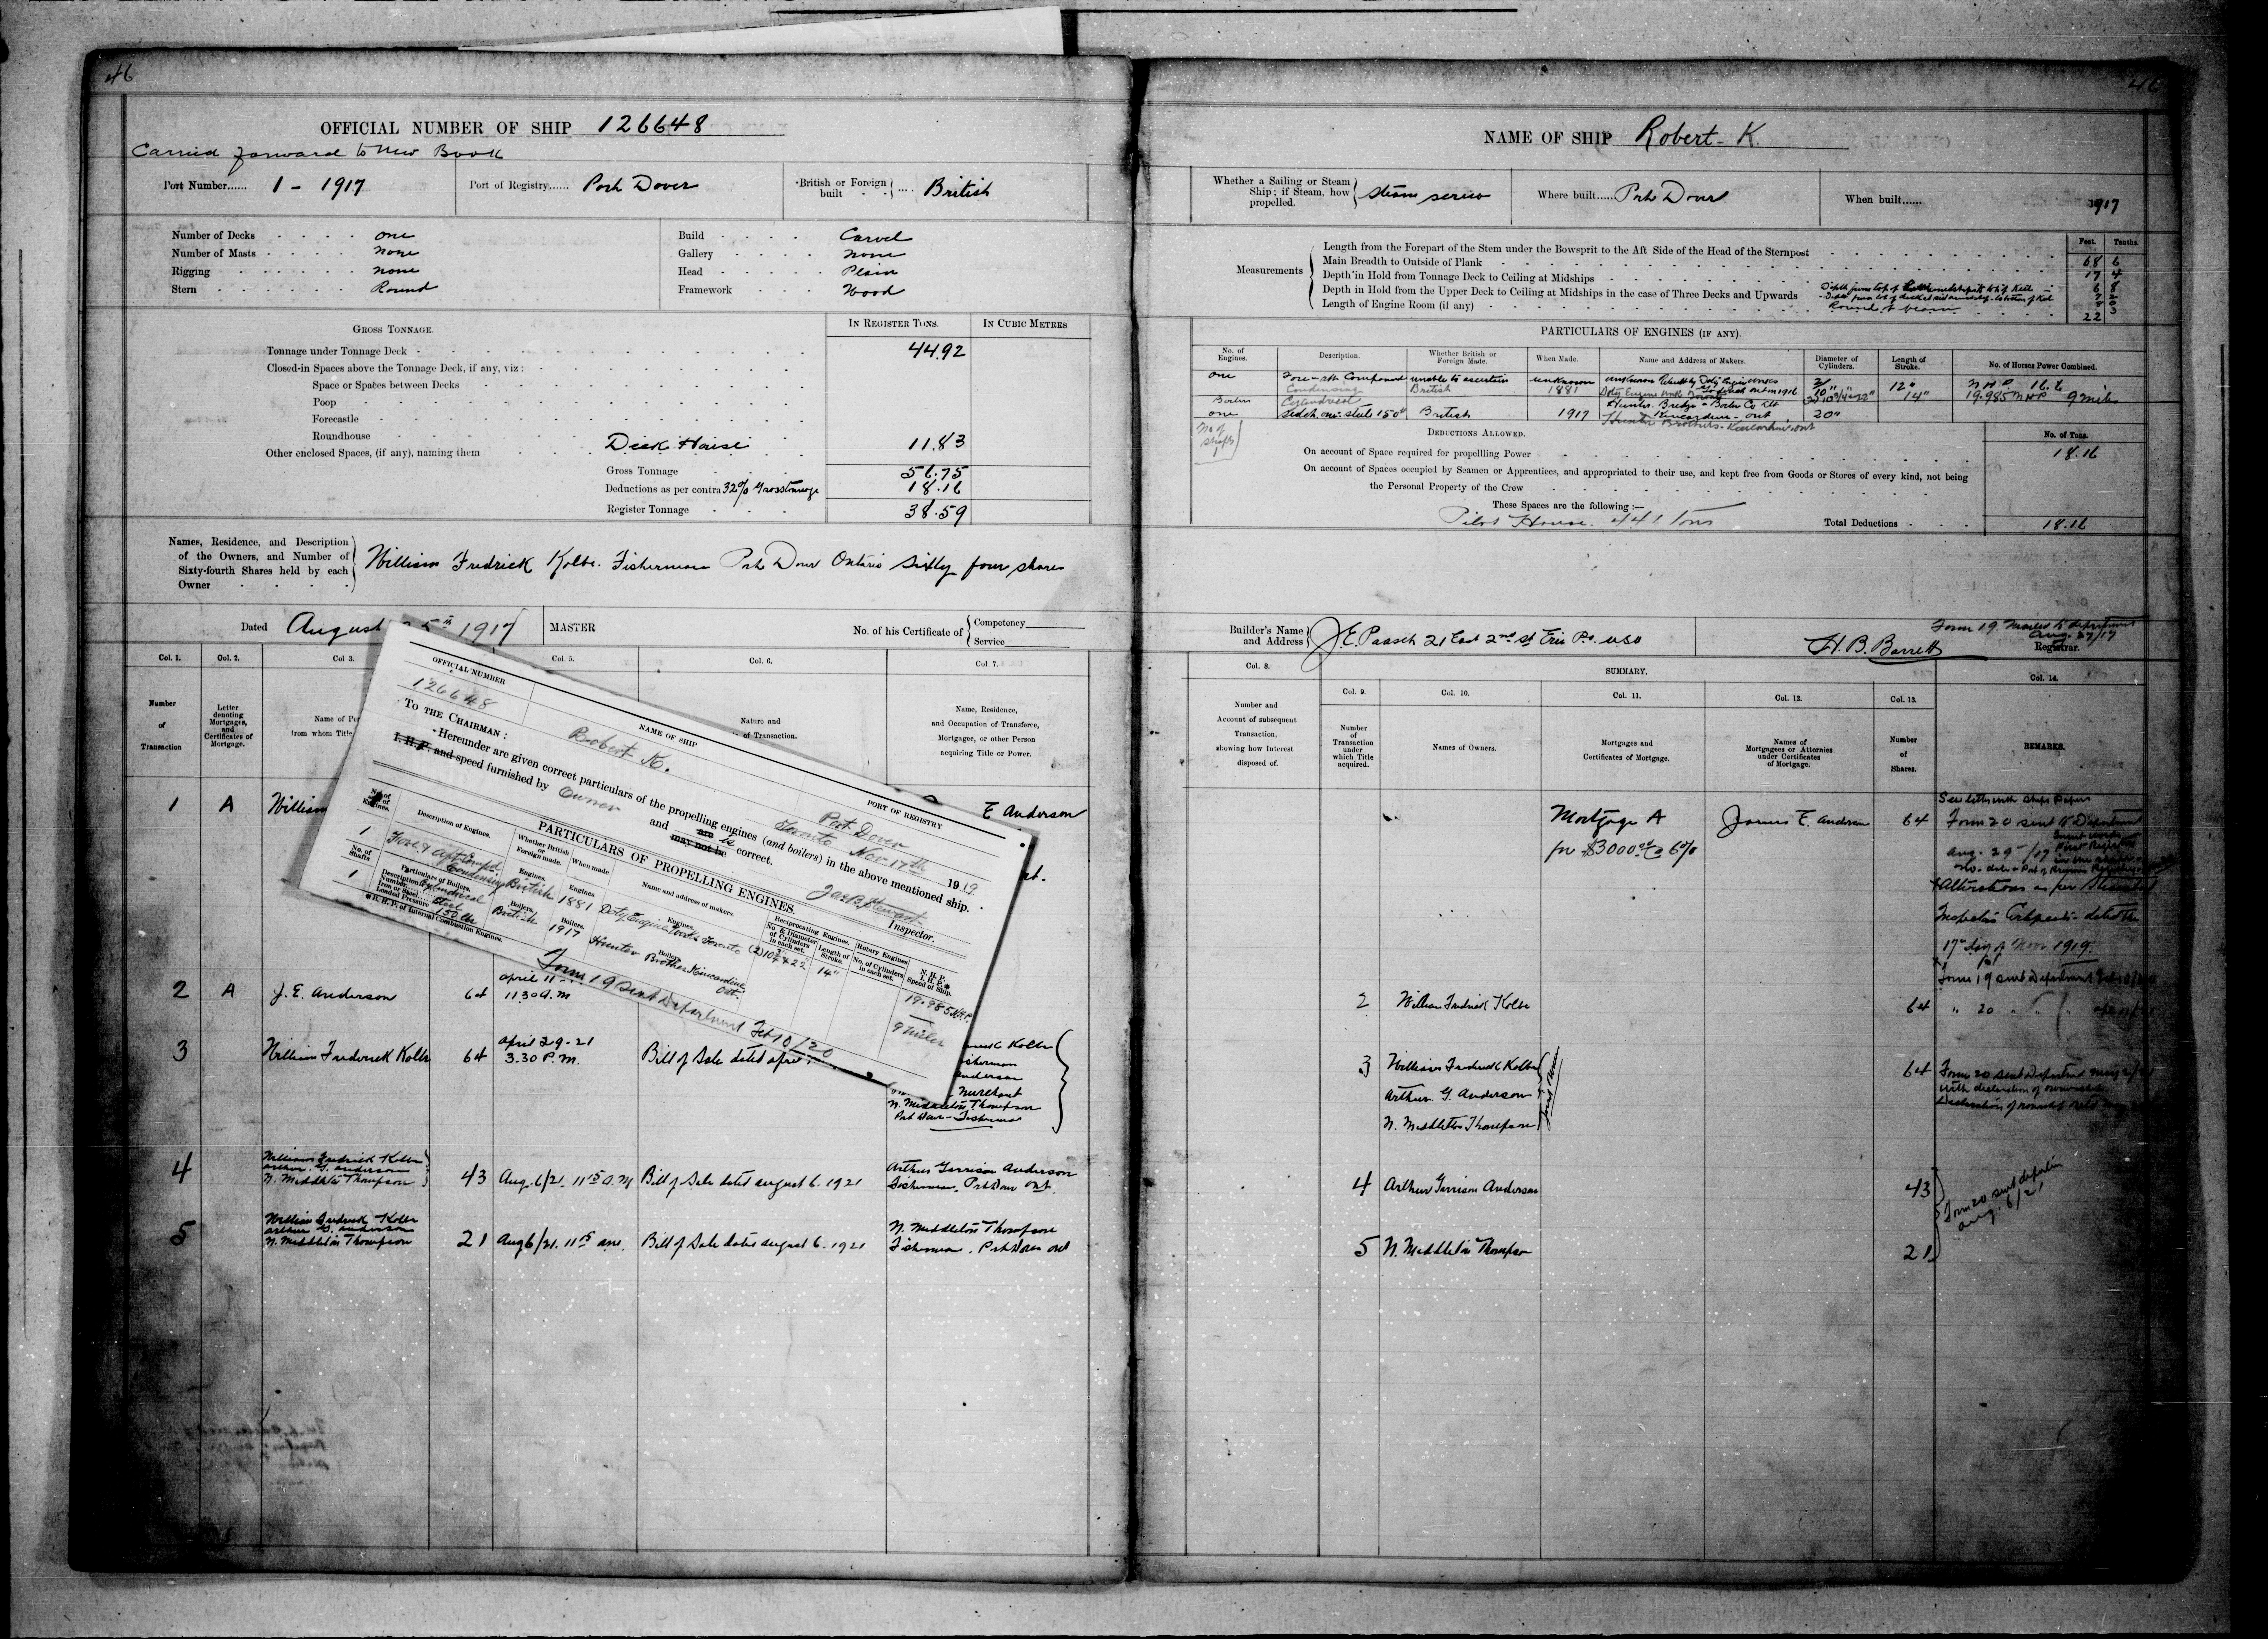 46
OFFICIAL NUMBER OF SHIP 126648
Carried forward to New Book
Port Number...... 1 - 1917
Port of Registry...... Port Dover
British or Foreign built British
Number of Decks one
Number of Masts none
Rigging none
Stern Round
Build Carvel
Gallery none
Head Plain
Framework Wood
GROSS TONNAGE.
IN REGISTER TONS.
IN CUBIC METRES
Tonnage under Tonnage Deck 44.92
Closed-in Spaces above the Tonnage Deck, if any, viz:
Space or Spaces between Decks
Poop
Forecastle
Roundhouse
Other enclosed Spaces, (if any), naming them Deck House 11.83
Gross Tonnage 56.75
Deductions as per contra 32% Gross tonnage 18.16
Register Tonnage 38.59
Names, Residence, and Description
of the Owners, and Number of
Sixty-fourth Shares held by each
Owner
William Fredrick Kolbe. Fisherman Port Dover Ontario Sixty four shares
Dated August 5th 1917
MASTER
No. of his Certificate of { Competency
Service
Col. 1.
Col. 2.
Col 3.
Col. 5.
Col. 6.
Col. 7.
Number
of
Transaction
Letter
denoting
Mortgages,
and
Certificates of
Mortgage.
Name of Per
from whom Title
Nature and
of Transaction.
Name, Residence,
and Occupation of Transferee,
Mortgagee, or other Person
acquiring Title or Power.
1 A William E Anderson
2 A J. E. Anderson 64 april 11 11.30 a.m
3 William Frederick Kolbe 64 april 29-21
3.30 P.M. Bill of Sale dated april
Kolbe
Merchant
N. Middleton Thompson
Port Dover - Fisherman
4 William Fredrick Kolbe
Arthur G. Anderson
N. Middleton Thompson 43 Aug. 6/21. 11 15 a.m Bill of Sale dated august 6. 1921 Arthur Garrison Anderson
Fisherman, Port Dover Ont
5 William Fredrick Kolbe
Arthur G. Anderson
N. Middleton Thompson 21 Aug 6/21. 11 15 am. Bill of Sale dated august 6. 1921 N. Middleton Thompson
Fisherman. Port Dover Ont
OFFICIAL NUMBER
126648
NAME OF SHIP
Robert K.
PORT OF REGISTRY
Port Dover
Toronto Nov 17th 1919
TO THE CHAIRMAN:
Hereunder are given correct particulars of the propelling engines (and boilers) in the above mentioned ship.
I.H.P. and speed furnished by Owner and are is may not be correct.
Jas B. Stewart
Inspector.
PARTICULARS OF PROPELLING ENGINES.
No. of
Engines.
Description of Engines.
Whether British or
Foreign made.
When made.
Name and address of makers.
Reciprocating Engines.
No. & Diameter
of Cylinders
in each set.
Length of
Stroke.
Rotary Engines
No. of Cylinders
in each set.
N. H. P.
I. H. P.
Speed of Ship.
1 Fore & Aft Compd. Condensing
Engines. British
Engines. 1881
Engines. Doty Engine Works Toronto
(2) 10¾ & 22
14"
19.985 N.H.P.
9 Miles
No. of
Shafts
1
Particulars of Boilers.
Description Cylindrical
Number
Iron or Steel Steel
Loaded Pressure 150 lbs
Boilers. British
Boilers. 1917
Boilers. Hunter Brothers Kincardine
Ont.
B. H. P. of Internal Combustion Engines.
Form 19 sent Department Feb 10/20
46
NAME OF SHIP Robert K.
Whether a Sailing or Steam
Ship; if Steam, how
propelled.
Steam screw
Where built...... Port Dover
When built...... 1917
Measurements
Feet. Tenths.
Length from the Forepart of the Stem under the Bowsprit to the Aft Side of the Head of the Sternpost 68 6
Main Breadth to Outside of Plank 17 4
Depth in Hold from Tonnage Deck to Ceiling at Midships
Depth in Hold from the Upper Deck to Ceiling at Midships in the case of Three Decks and Upwards
Length of Engine Room (if any) 22
Round of beam
PARTICULARS OF ENGINES (IF ANY).
No. of
Engines.
Description.
Whether British or
Foreign Made.
When Made.
Name and Address of Makers.
Diameter of
Cylinders.
Length of
Stroke.
No. of Horses Power Combined.
one Fore-aft Compound unable to ascertain unknown 12"
Condensing British 1881 14" 19.985 N H P 9 miles
Boilers Cylindrical
one steel 150# British 1917 Hunter Bridge & Boiler Co Ltd
Kincardine - Ont 20"
Hunter Brothers - Kincardine, Ont
No of
shafts
1
DEDUCTIONS ALLOWED.
No. of Tons.
On account of Space required for propelling Power 18.16
On account of Spaces occupied by Seamen or Apprentices, and appropriated to their use, and kept free from Goods or Stores of every kind, not being
the Personal Property of the Crew
These Spaces are the following:—
Pilot House. 4.41 Tons
Total Deductions 18.16
Builder's Name
and Address
J. E. Paasch 21 East 2nd St Erie Pa. USA
Form 19 mailed to department
Aug. 27/17
H. B. Barrett
Registrar.
Col. 8.
SUMMARY.
Col. 9.
Col. 10.
Col. 11.
Col. 12.
Col. 13.
Col. 14.
Number and
Account of subsequent
Transaction,
showing how Interest
disposed of.
Number
of
Transaction
under
which Title
acquired.
Names of Owners.
Mortgages and
Certificates of Mortgage.
Names of
Mortgagees or Attornies
under Certificates
of Mortgage.
Number
of
Shares.
REMARKS.
Mortgage A
for $3000.00 @ 6%
James E. Anderson 64
See letter with ships papers
Form 20 sent to Department
Aug. 29 - /17
Alterations as per Steamboat
Inspector Certificate dated the
17th day of Nov 1919.
Form 19 sent Department
2 William Fredrick Kolbe 64 " 20 " "
3 William Frederick Kolbe
Arthur G. Anderson
N. Middleton Thompson
Joint Owners
64 Form 20 sent Department May 2/21
with declaration of ownership
4 Arthur Garrison Anderson 43
5 N. Middleton Thompson 21
Form 20 sent
Aug. 6/21